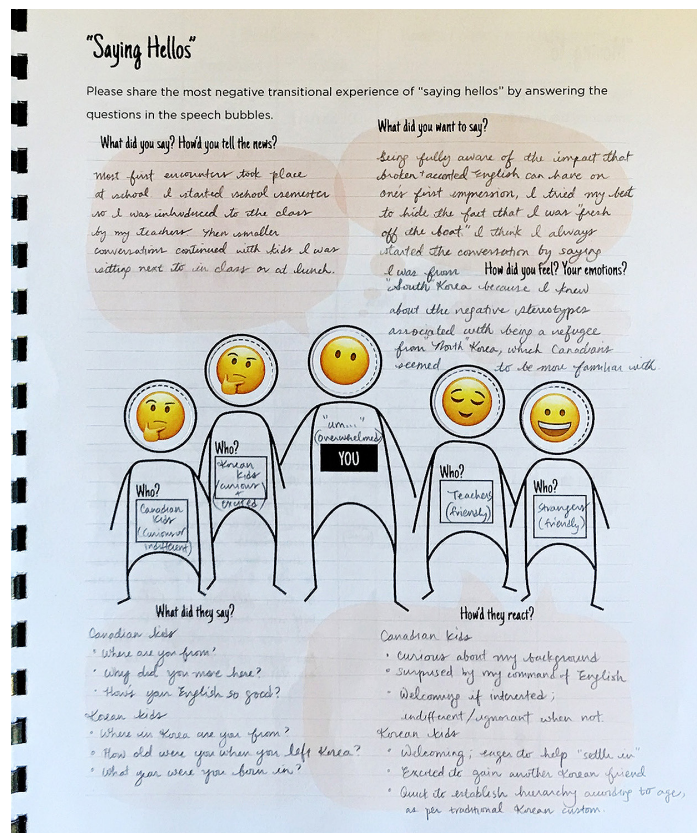 "Saying Hellos"
Please share the most negative transitional experience of "saying hellos" by answering the
questions in the speech bubbles.
What did you say? How'd you tell the news?
Most first encounters took place
at school. I started school semester
so I was introduced to the class
by my teachers. Then smaller
conversations continued with kids I was
sitting next to in class or at lunch.
What did you want to say?
Being fully aware of the impact that
broken + accented English can have on
one's first impression, I tried my best
to hide the fact that I was "fresh
off the boat." I think I always
started the conversation by saying
I was from
How did you feel? Your emotions?
"South Korea because I knew
about the negative stereotypes
associated with being a refugee
from "North" Korea, which Canadians
seemed to be more familiar with.
Who?
Canadian
kids
(curious or
indifferent)
Who?
Korean
kids
(curious
+
excited)
"um..."
(overwhelmed)
YOU
Who?
Teachers
(friendly)
Who?
Strangers
(friendly)
What did they say?
Canadian kids
• Where are you from?
• Why did you move here?
• How's your English so good?
Korean kids
• Where in Korea are you from?
• How old were you when you left Korea?
• What year were you born in?
How'd they react?
Canadian kids
• Curious about my background
• Surprised by my command of English
• Welcoming if interested;
indifferent/ignorant when not.
Korean kids
• Welcoming; eager to help "settle in"
• Excited to gain another Korean friend
• Quick to establish hierarchy according to age,
as per traditional Korean custom.